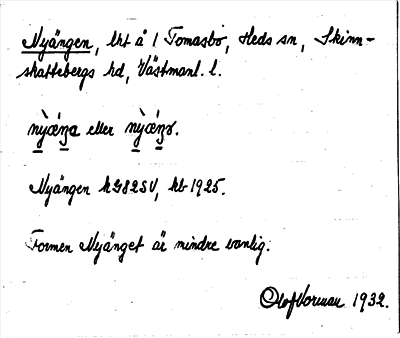 Nyängen, lht å 1 Tomasbo, Heds sn, Skinn-
skattebergs hd, Västmanl. l.
eller
Nyängen k 982SV, kb 1925.
Formen Nyänget är mindre vanlig.
Olof Vorman 1932.